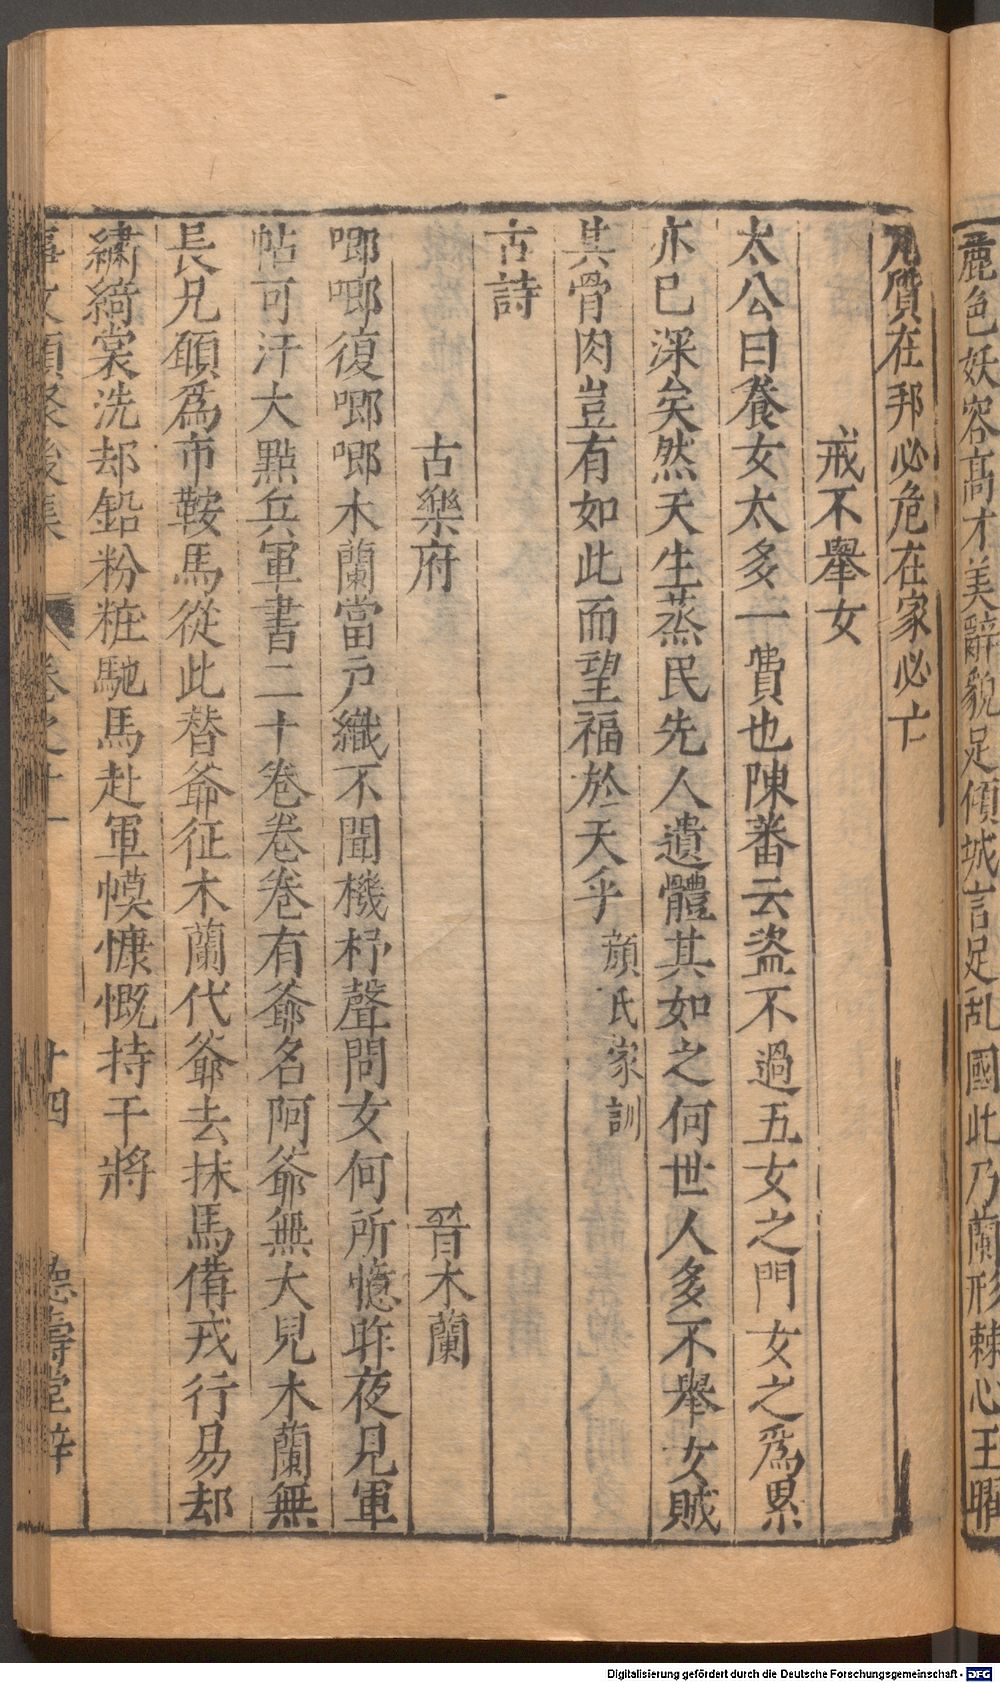 麗色妖容高才美辭貌足傾城言足乱國此乃蘭形棘心玉曜
瓦質在邦必危在家必亡
戒不舉女
太公曰養女太多一費也陳蕃云盜不過五女之門女之爲累
亦已深矣然天生蒸民先人遺體其如之何世人多不舉女賊
其骨肉豈有如此而望福於天乎顔氏家訓
古詩
古樂府 晉木蘭
唧唧復唧唧木蘭當戶織不聞機杼聲問女何所憶昨夜見軍
帖可汗大點兵軍書二十卷卷卷有爺名阿爺無大兒木蘭無
長兄願爲市鞍馬從此替爺征木蘭代爺去抹馬備戎行易却
繡綺裳洗却鉛粉粧馳馬赴軍幕慷慨持干將
事文類聚後集 卷之十一 十四 德壽堂梓
Digitalisierung gefördert durch die Deutsche Forschungsgemeinschaft - DFG